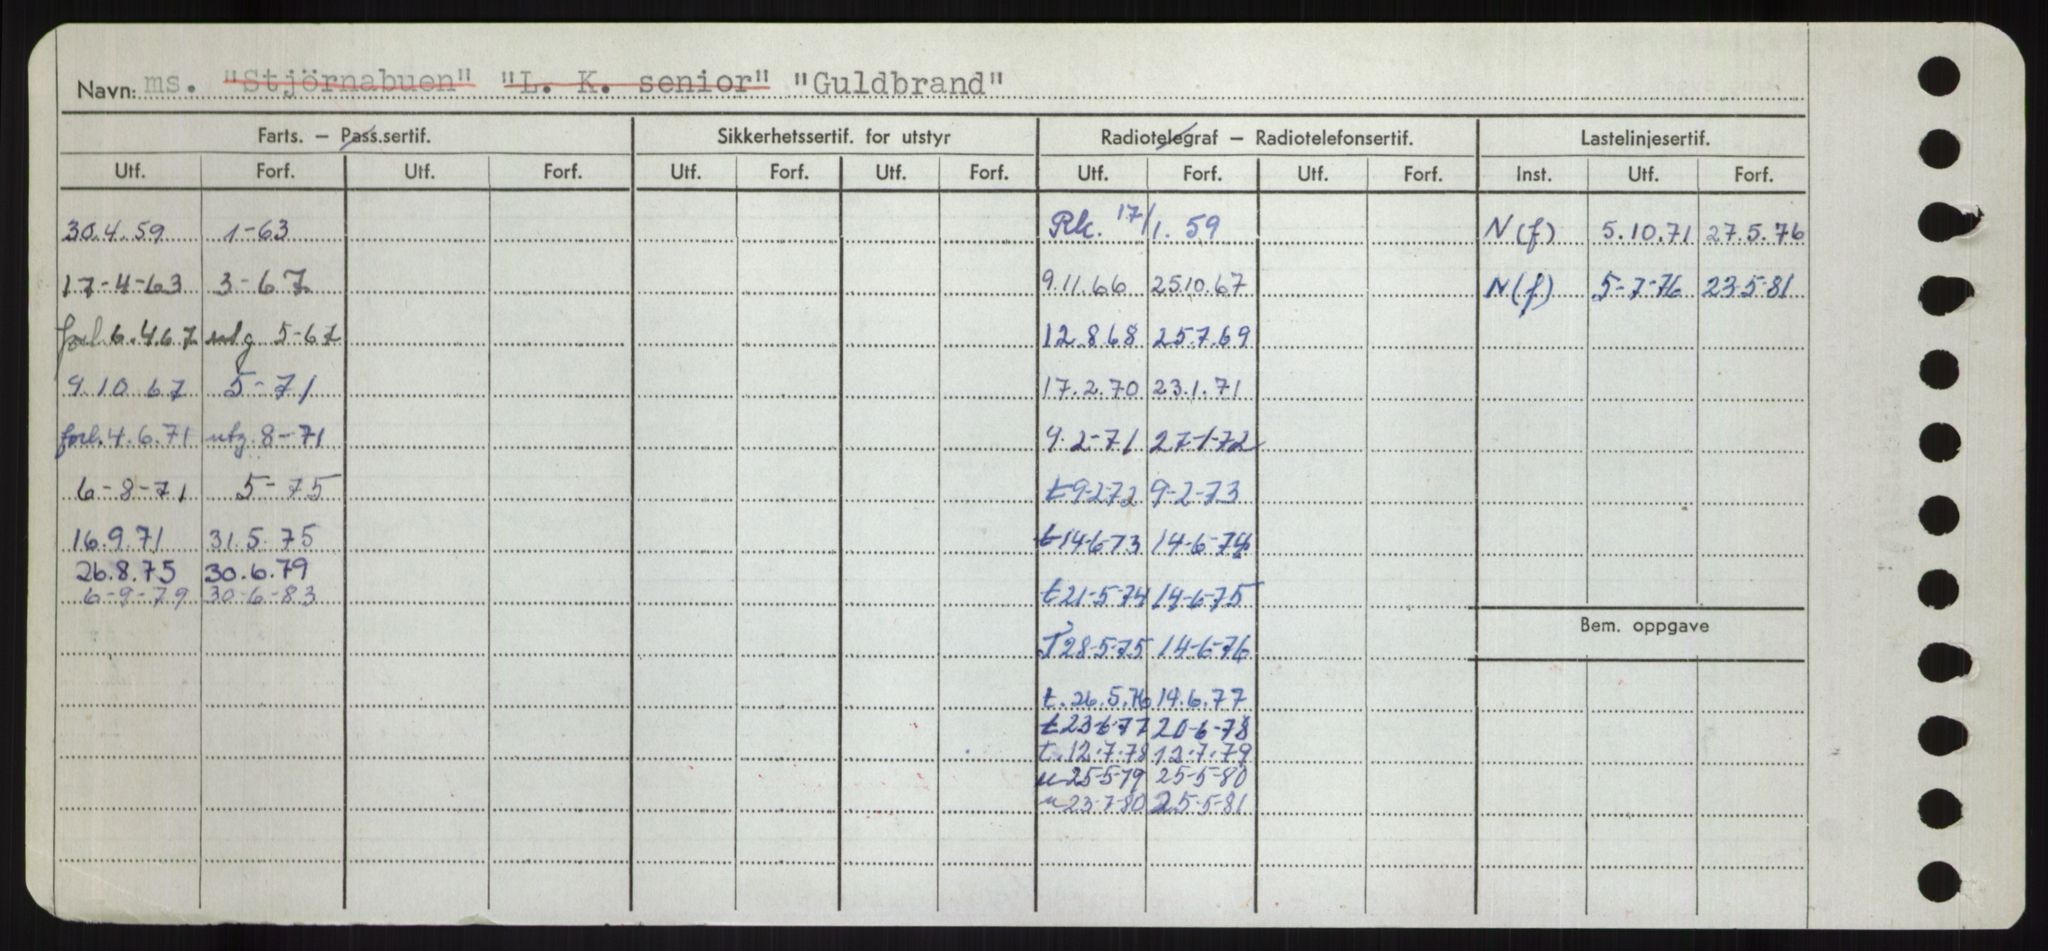 Navn: ms. "Stjörnabuen" "L. K. senior" "Guldbrand"
Farts. – Pass.sertif. Sikkerhetssertif. for utstyr Radiotelegraf – Radiotelefonsertif. Lastelinjesertif.
Utf. Forf. Utf. Forf. Utf. Forf. Utf. Forf. Utf. Forf. Utf. Forf. Inst. Utf. Forf.
30.4.59 1-63 Rk. 17/1.59 N(f) 5.10.71 27.5.76
17-4-63 3-67 9.11.66 25.10.67 N(f) 5-7-76 23-5-81
forl. 6.4.67 utg 5-67 12.8.68 25.7.69
9.10.67 5-71 17.2.70 23.1.71
forl. 4.6.71 utg. 8-71 9.2-71 27-1-72
6-8-71 5-75 t 9-2-72 9-2-73
16.9.71 31.5.75 t 14-6-73 14-6-74
26.8.75 30.6.79
6-9-79 30-6-83 t 21-5-74 14-6-75
Bem. oppgave
T 28-5-75 14-6-76
t. 26.5.76 14.6.77
t 23-6-77 20-6-78
t. 12.7.78 12.7.79
u 25-5-79 25-5-80
u 23-7-80 25-5-81